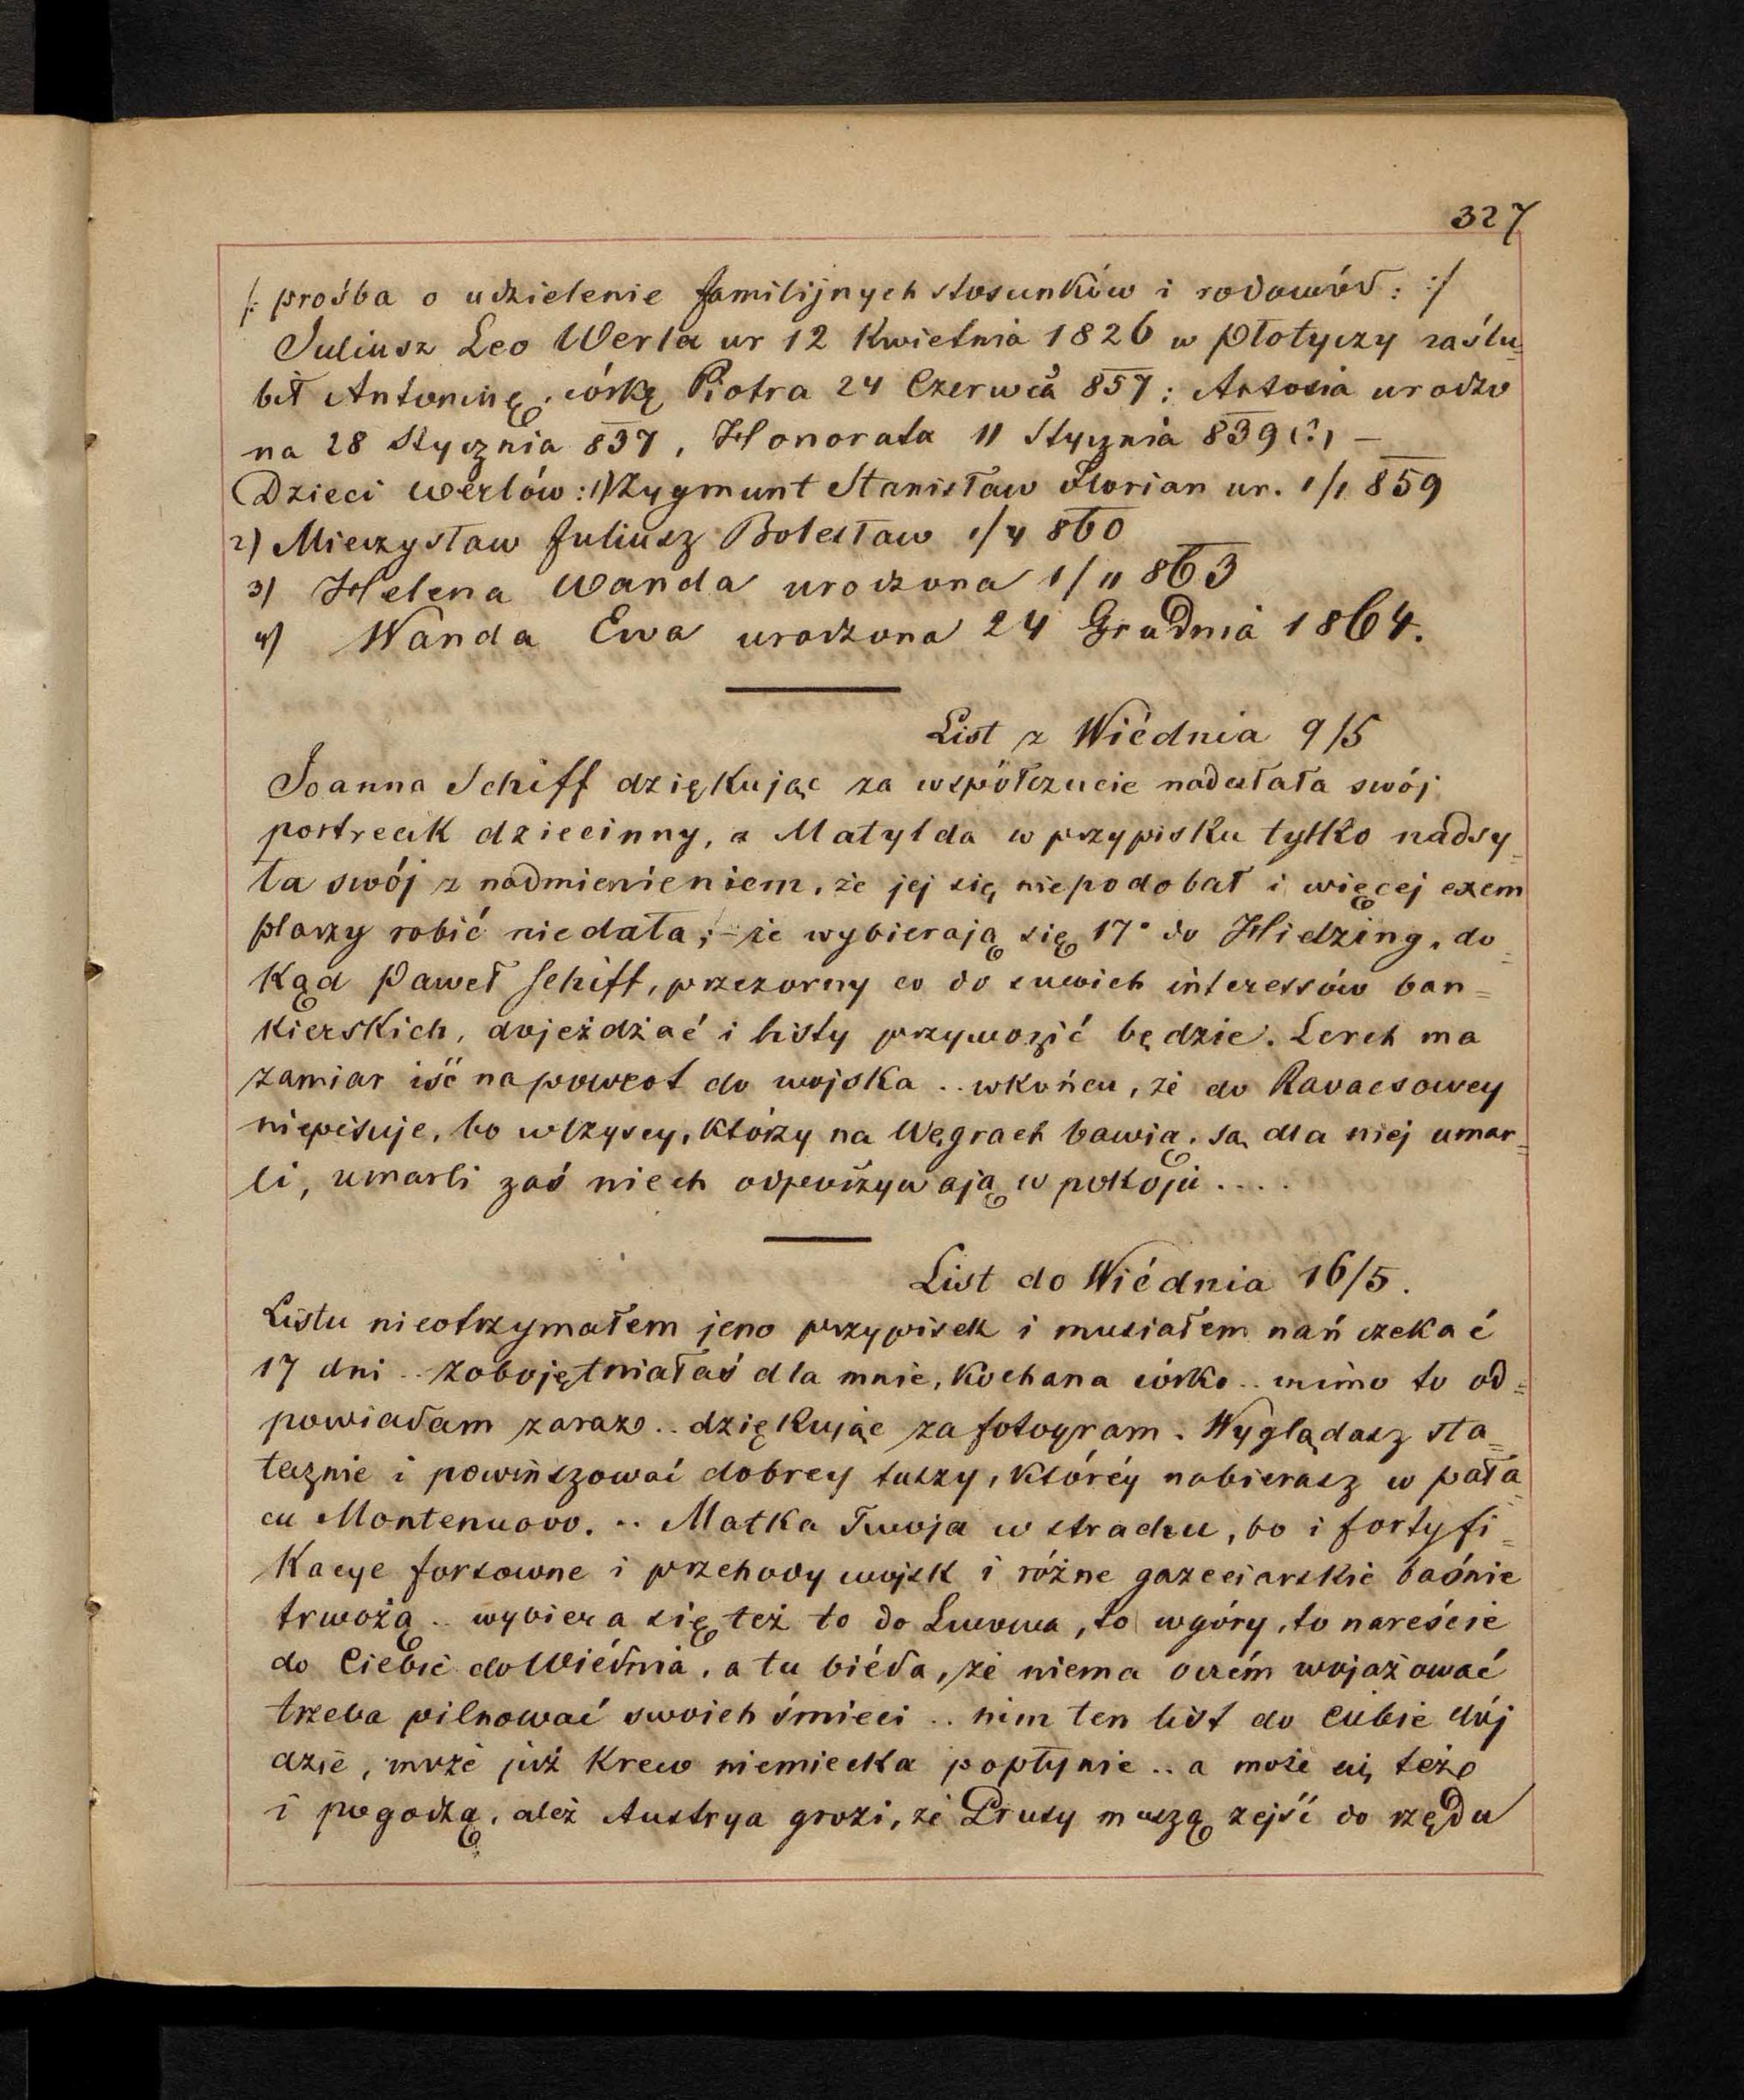 327
/: prośba o udzielenie familijnych stosunków i rodowód: :/
Juliusz Leo Werla ur 12 Kwietnia 1826 w Płotyczy zaślu-
bił Antoninę, córkę Piotra 24 Czerwca 857; Antosia urodzo
na 28 Stycznia 837, Honorata 11 Stycznia 839 (?) —
Dzieci Werlów: 1) Zygmunt Stanisław Florian ur. 1/1 859
2) Mieczysław Juliusz Bolesław 1/4 860
3) Helena Wanda urodzona 1/11 863
4) Wanda Ewa urodzona 24 Grudnia 1864.
List z Wiédnia 9/5
Joanna Schiff dziękując za współczucie nadesłała swój
portrecik dziecinny, a Matylda w przypisku tylko nadsy-
ła swój z nadmienieniem, że jej się niepodobał i więcej exem
plarzy robić niedała; – że wybierają się 17° do Hiedzing, do-
kąd Paweł Schiff, przezorny co do swoich interessów ban=
kierskich, dojeżdżać i listy przywozić będzie. Lerch ma
zamiar iść napowrot do wojska .. wkońcu, że do Ravacsowey
niepisuje, bo wszyscy, którzy na Węgrach bawią, są dla niej umar=
li, umarli zaś niech odpoczywają w pokoju ....
List do Wiédnia 16/5.
Listu nieotrzymałem jeno przypisek i musiałem nań czekać
17 dni .. zobojętniałaś dla mnie, kochana córko .. mimo to od=
powiadam zaraz .. dziękując za fotogram. Wyglądasz sta=
tecznie i powinszować dobrey tuszy, któréy nabierasz w pała-
cu Montenuovo. .. Matka Twoja w strachu, bo i fortyfi=
kacye forsowne i przehody wojsk i różne gazeciarskie baśnie
trwożą .. wybiera się też to do Lwowa, to wgóry, to nareście
do Ciebie do Wiédnia, a tu biéda, że niema oczém wojażować
trzeba pilnować swoich śmieci .. nim ten list do Ciebie dój
dzie, może już krew niemiecka popłynie .. a może się też
i pogodzą, ależ Austrya grozi, że Prusy muszą zejść do rzędu